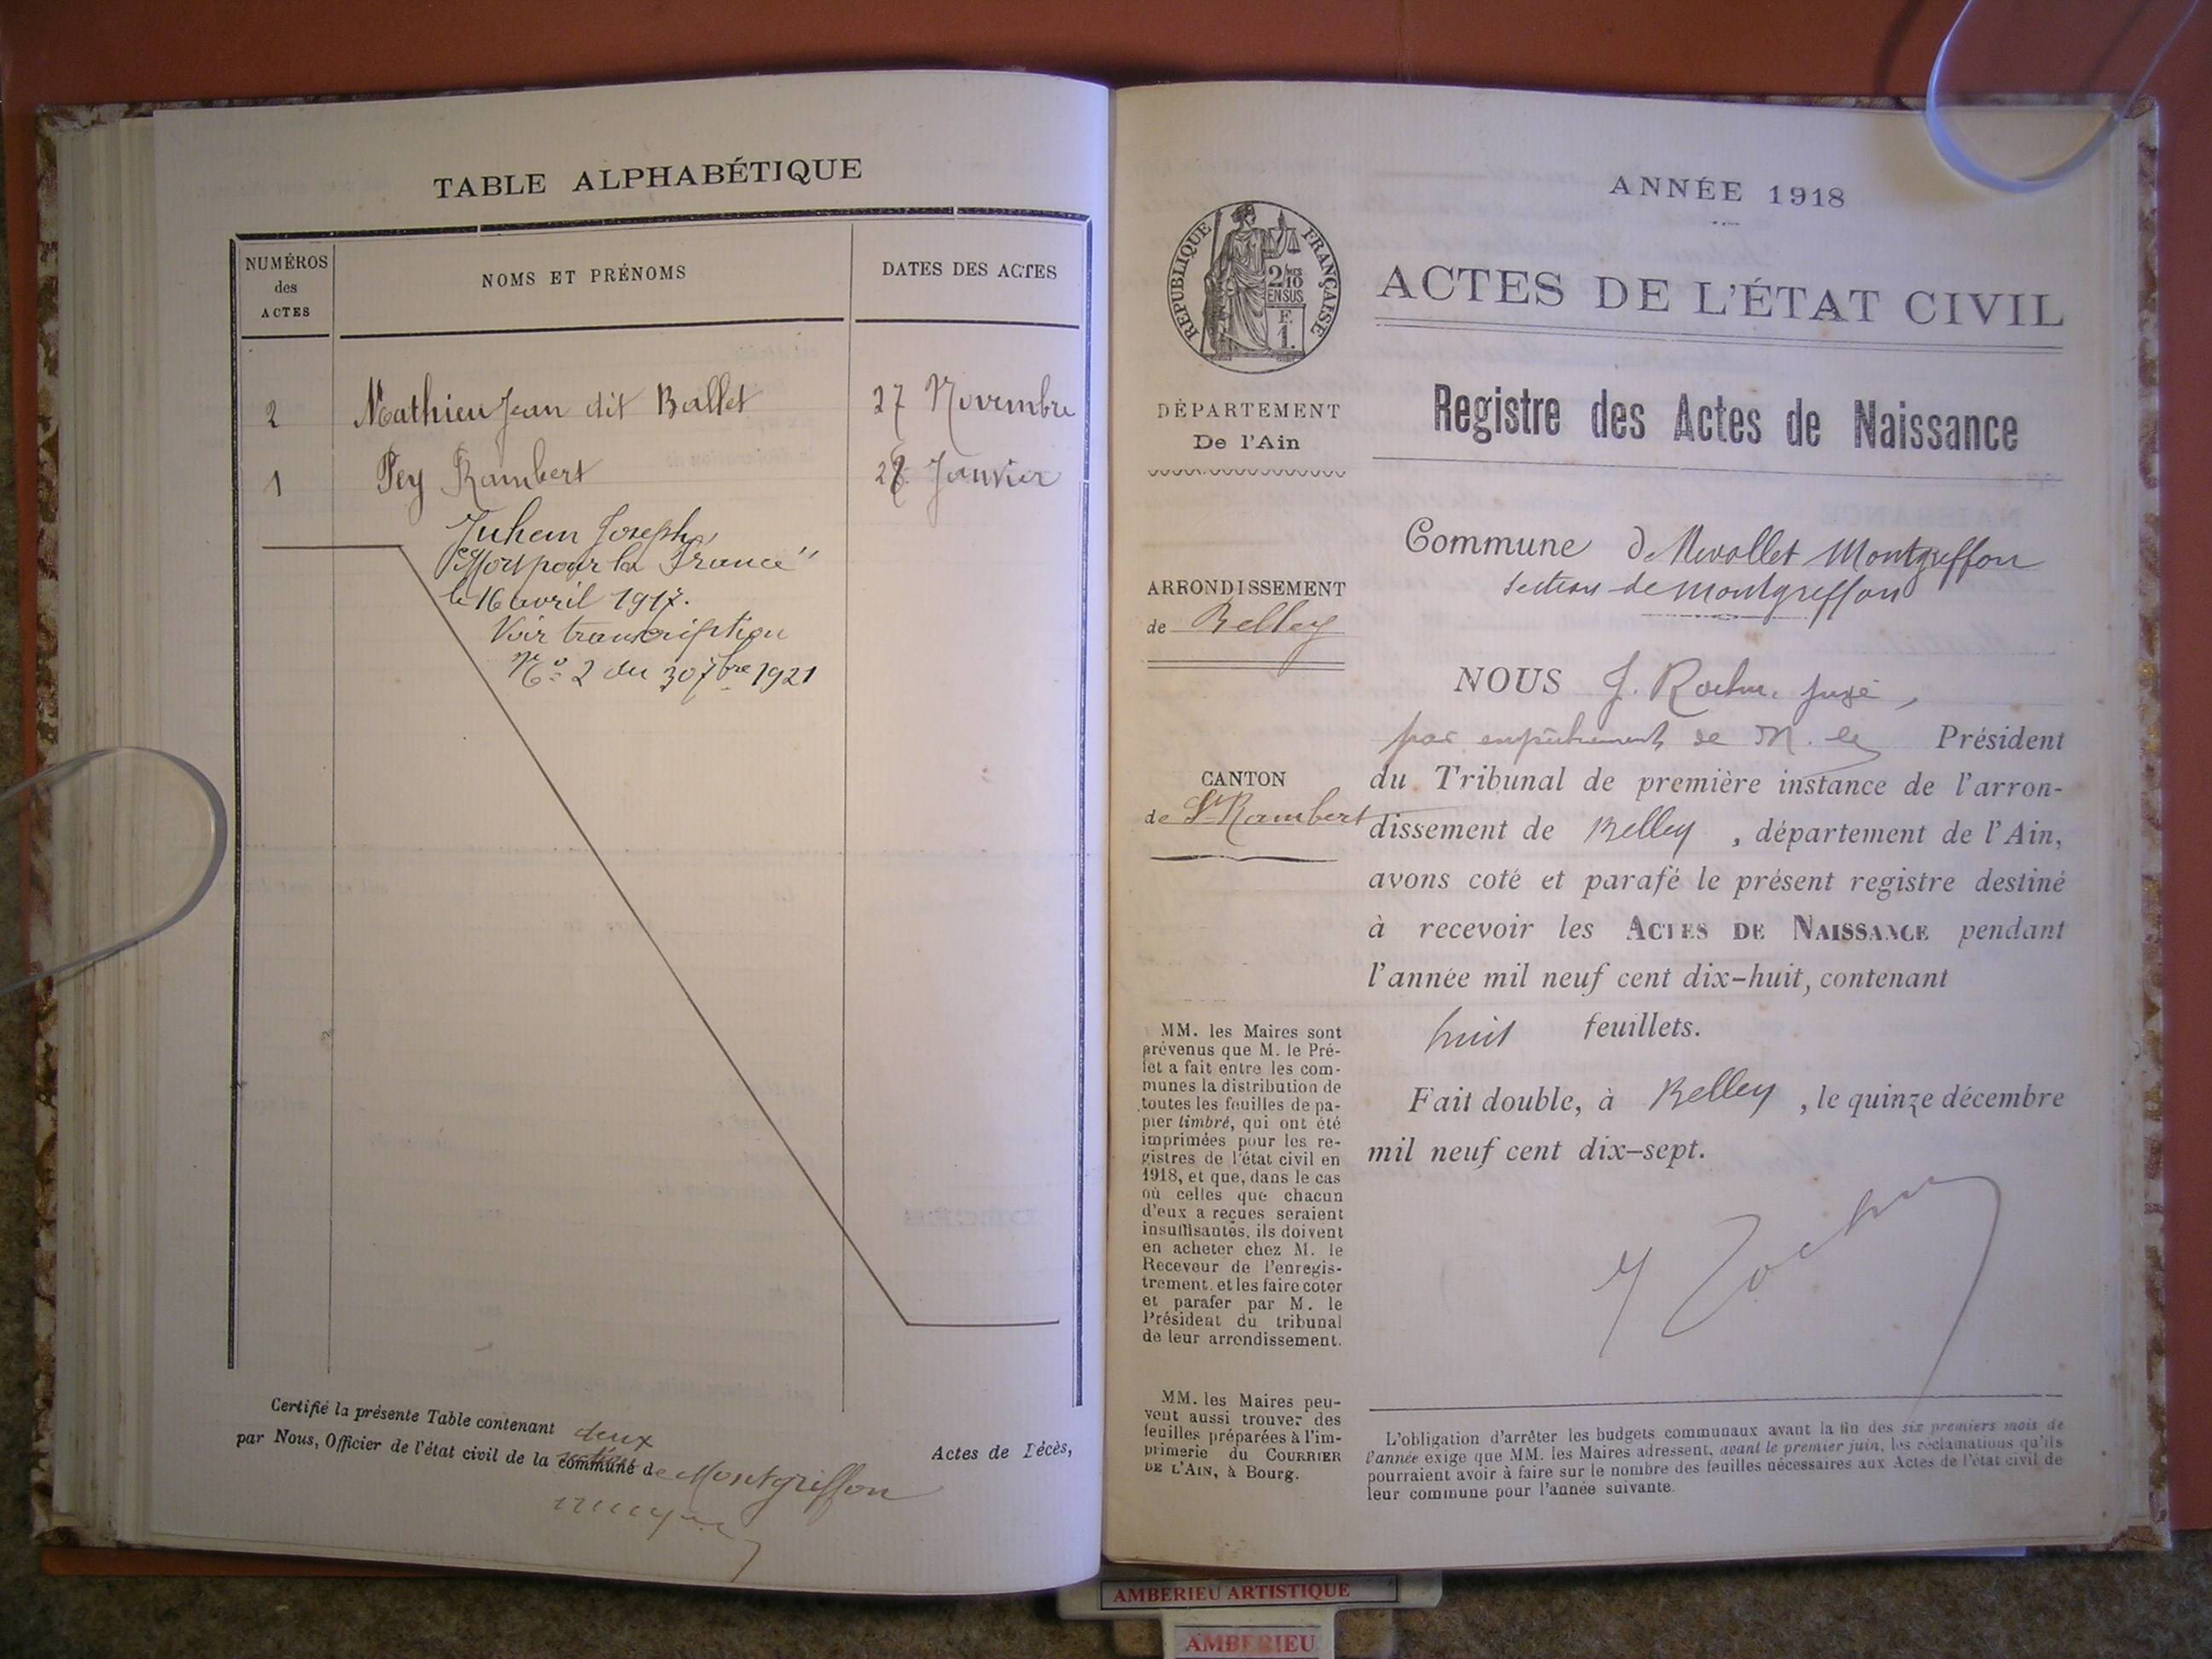 TABLE ALPHABÉTIQUE
NUMÉROS
des
ACTES
NOMS ET PRÉNOMS
DATES DES ACTES
2 Mathieu Jean dit Ballet 27 Novembre
1 Pey Rambert 28 Janvier
Juhem Joseph,
"Mort pour la France"
le 16 avril 1917.
Voir transcription
No: 2 du 30 7bre 1921
Certifié la présente Table contenant deux Actes de Décès,
par Nous, Officier de l'état civil de la section commune de Montgriffon
ANNÉE 1918
RÉPUBLIQUE FRANÇAISE
2/10
EN SUS
F.
1.
ACTES DE L'ÉTAT CIVIL
Registre des Actes de Naissance
DÉPARTEMENT
De l'Ain
ARRONDISSEMENT
de Belley
CANTON
de St Rambert
MM. les Maires sont
prévenus que M. le Pré-
fet a fait entre les com-
munes la distribution de
toutes les feuilles de pa-
pier timbré, qui ont été
imprimées pour les re-
gistres de l'état civil en
1918, et que, dans le cas
où celles que chacun
d'eux a reçues seraient
insuffisantes, ils doivent
en acheter chez M. le
Receveur de l'enregis-
trement, et les faire coter
et parafer par M. le
Président du tribunal
de leur arrondissement.
MM. les Maires peu-
vent aussi trouver des
feuilles préparées à l'im-
primerie du COURRIER
DE L'AIN, à Bourg.
Commune de Nivollet Montgriffon
section de Montgriffon
NOUS J. Rochu. juge,
par empêchement de M. le Président
du Tribunal de première instance de l'arron-
dissement de Belley , département de l'Ain,
avons coté et parafé le présent registre destiné
à recevoir les ACTES DE NAISSANCE pendant
l'année mil neuf cent dix-huit, contenant
huit feuillets.
Fait double, à Belley , le quinze décembre
mil neuf cent dix-sept.
L'obligation d'arrêter les budgets communaux avant la fin des six premiers mois de
l'année exige que MM. les Maires adressent, avant le premier juin, les réclamations qu'ils
pourraient avoir à faire sur le nombre des feuilles nécessaires aux Actes de l'état civil de
leur commune pour l'année suivante.
AMBERIEU ARTISTIQUE
AMBERIEU